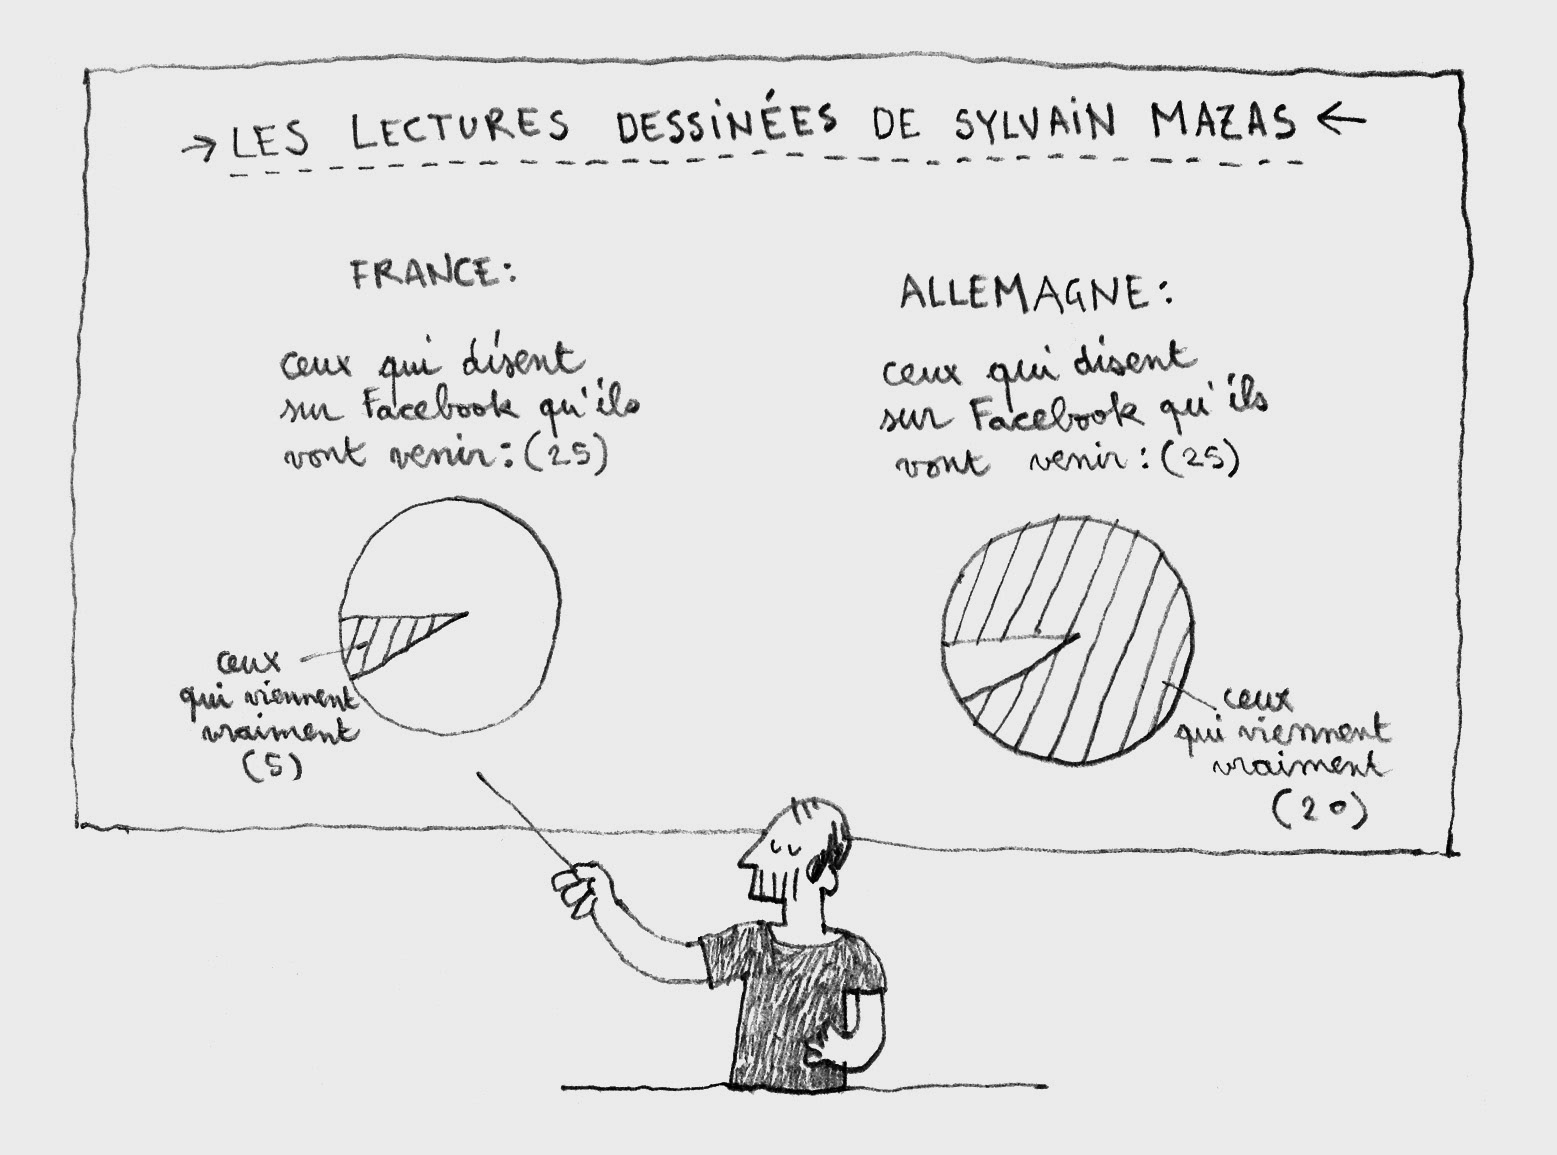 → LES LECTURES DESSiNÉES DE SYLVAiN MAZAS ←
FRANCE:
ceux qui disent
sur Facebook qu'ils
vont venir: (25)
ceux
qui viennent
vraiment
(5)
ALLEMAGNE:
ceux qui disent
sur Facebook qu'ils
vont venir: (25)
ceux
qui viennent
vraiment
(20)